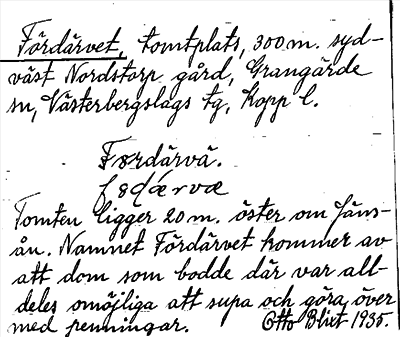 Fördärvet, tomtplats, 300 m. syd-
väst Nordstorp gård, Grangärde
sn, Västerbergslags tg, Kopp l.
Fördärvä.
Tomten ligger 20 m. öster om Jäns-
ån. Namnet Fördärvet kommer av
att dom som bodde där var all-
deles omöjliga att supa och göra över
med penningar. Otto Blixt 1935.